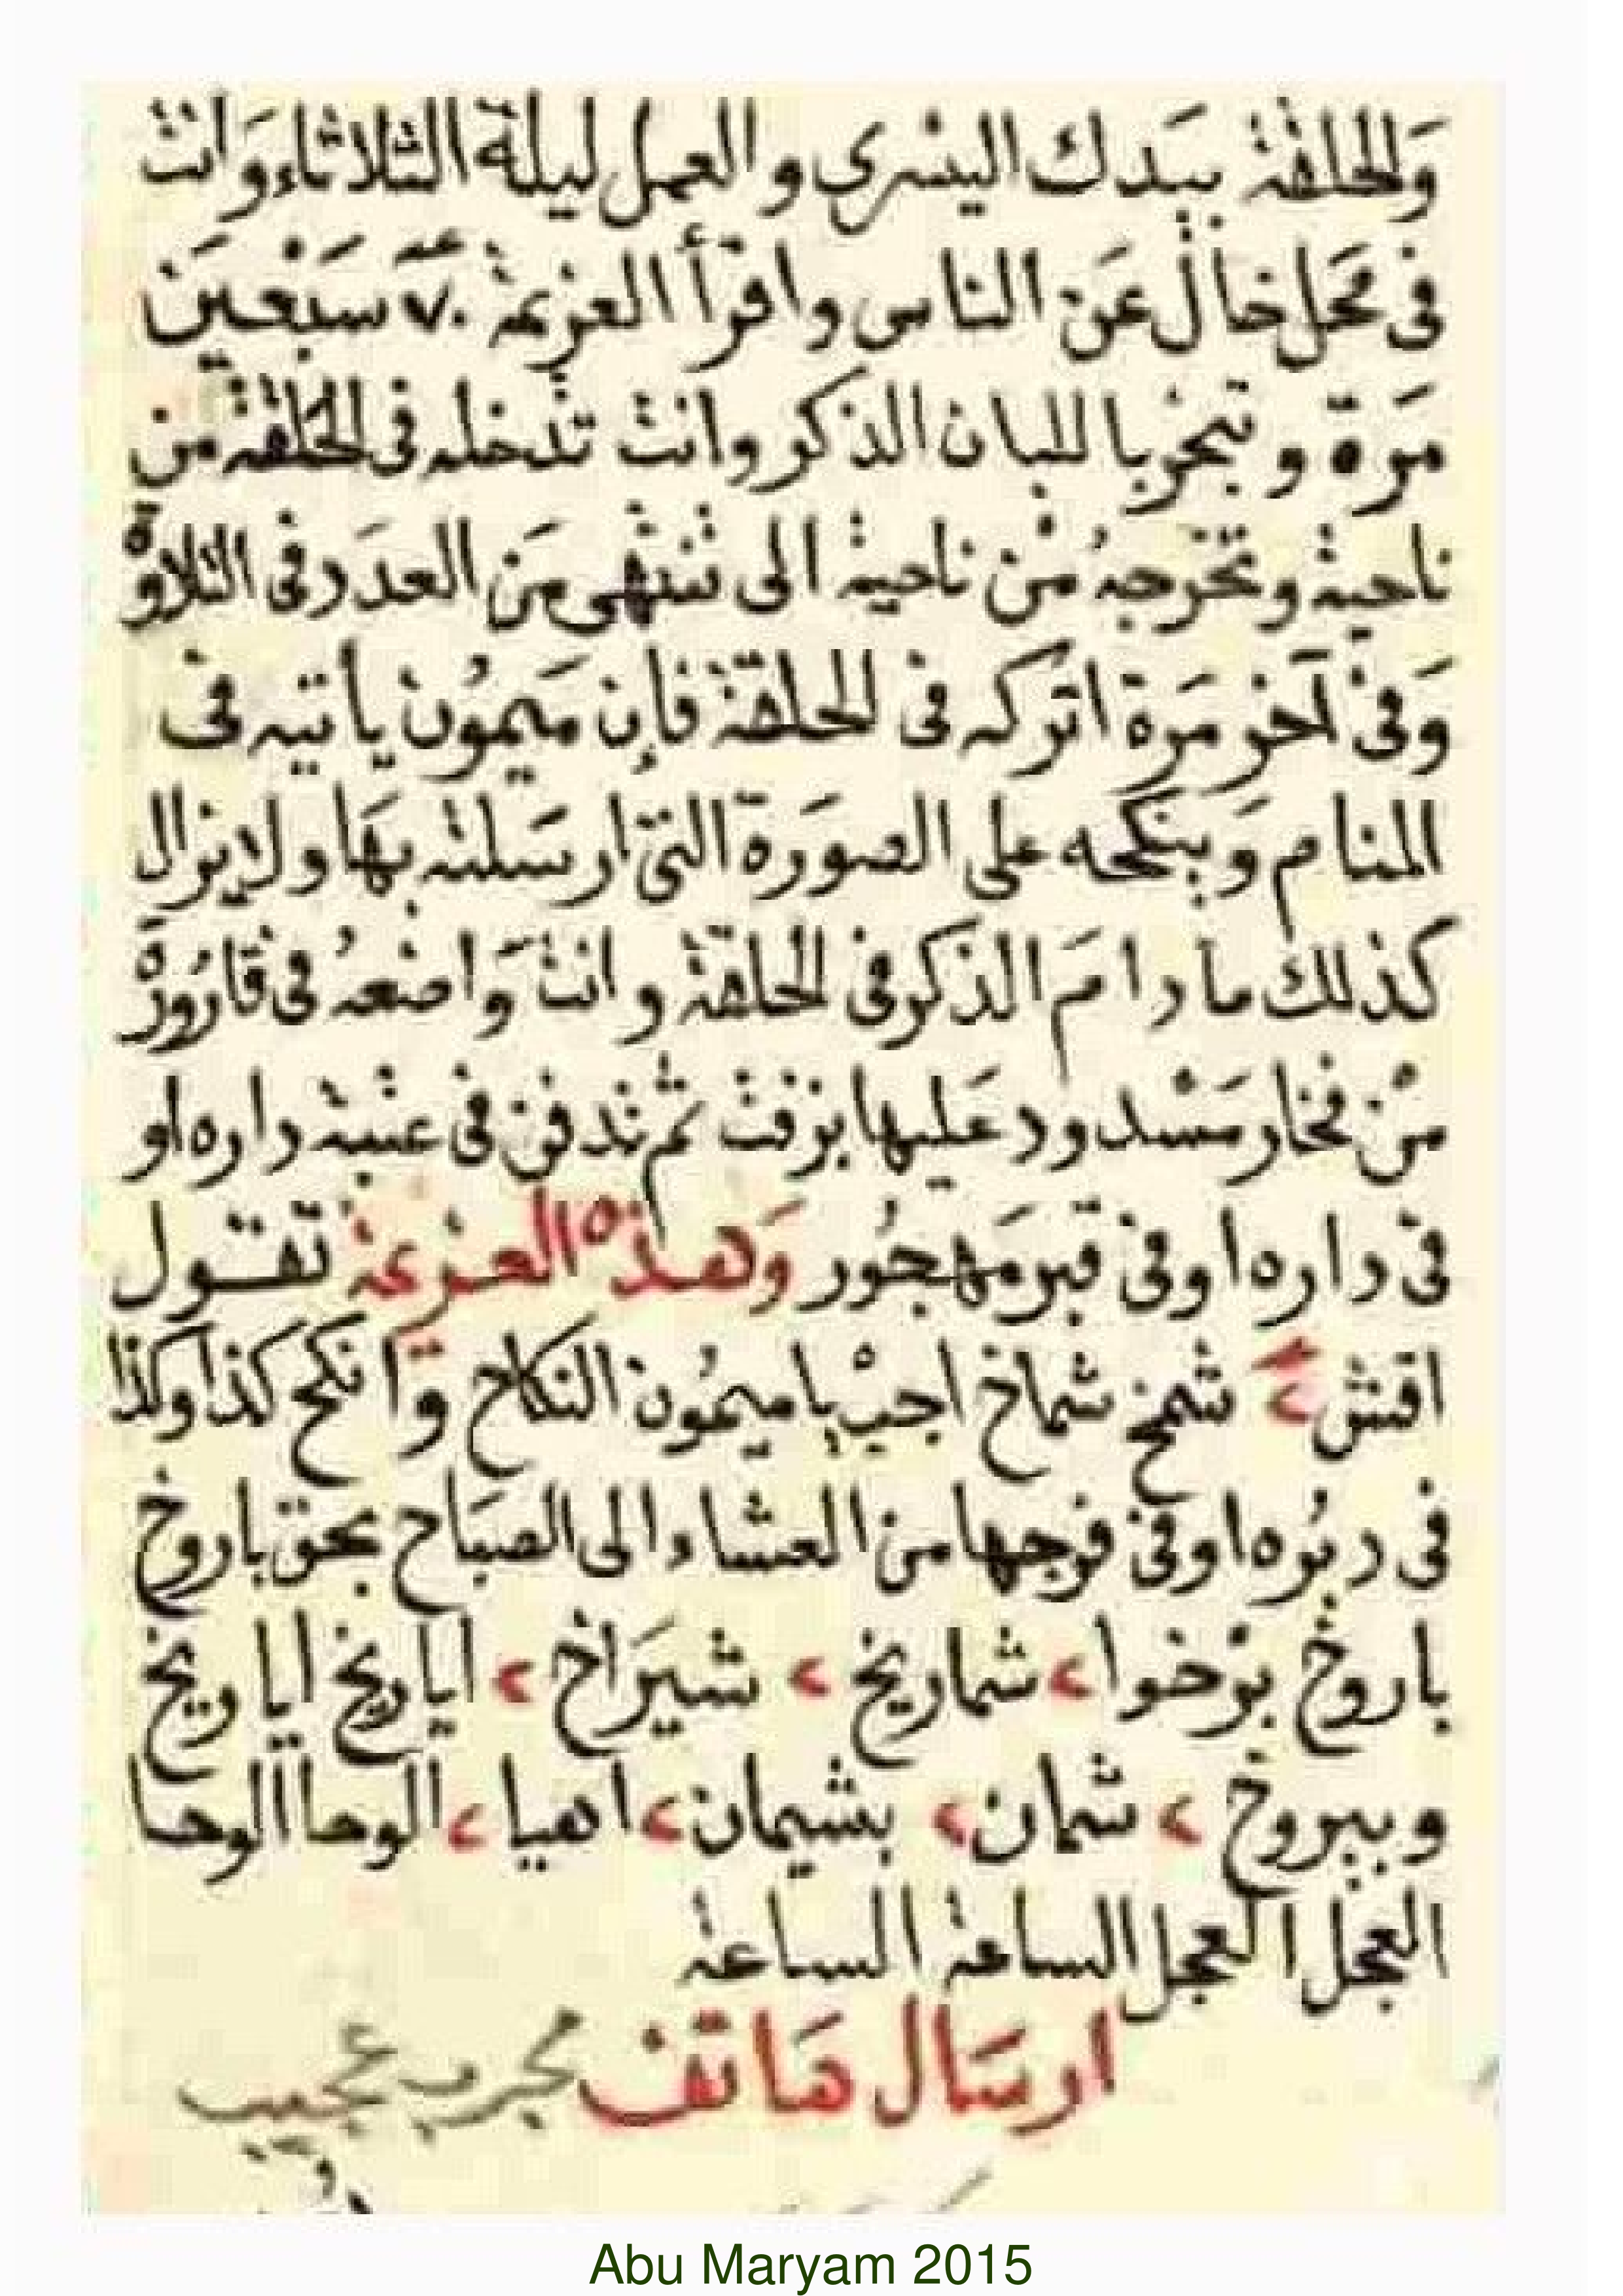 وَالحلقة بيَدك اليسْرى والعمل ليلة الثلاثاء وَانت
فى مَحَل خال عَن الناس واقرأ العزيمة ٧٠ سَبْعيَن
مَرة وتبخر باللبان الذكر وانت تدخله فى الحلقة من
ناحية وتخرجهُ من ناحية الى تنتهى مَن العدَد فى التلاوة
وَفى آخر مَرة اتركه فى الحلقة فإن مَيمُون يأتيه فى
المنام وَينكحه على الصوَرة التى ارسَلته بهَا ولا يزال
كذلك ما دامَ الذكر فى الحلقة وانت وَاضعهُ فى قارُورَة
منْ فخار مَسْدود عَليها بزفت ثم تدفن فى عتبة داره او
فى داره اوفى قبر مَهجُور وَهذه العزيمة تقول
اقش ٢ شمخ شماخ اجبْ يا ميمُون النكاح وَانكح كذا وكذا
فى دبُره اوفى فرجها من العشاء الى الصبَاح بحق باروخ
باروخ برْخوا ٢ شماريخ ٢ شيرَاخ ٢ اياريخ اياريخ
وبيروخ ٢ شمان ٢ بشيمان ٢ اهيا ٢ الوحا الوحا
العجل العجل الساعة الساعة
ارسَال هَاتف مجرب عجيب
Abu Maryam 2015